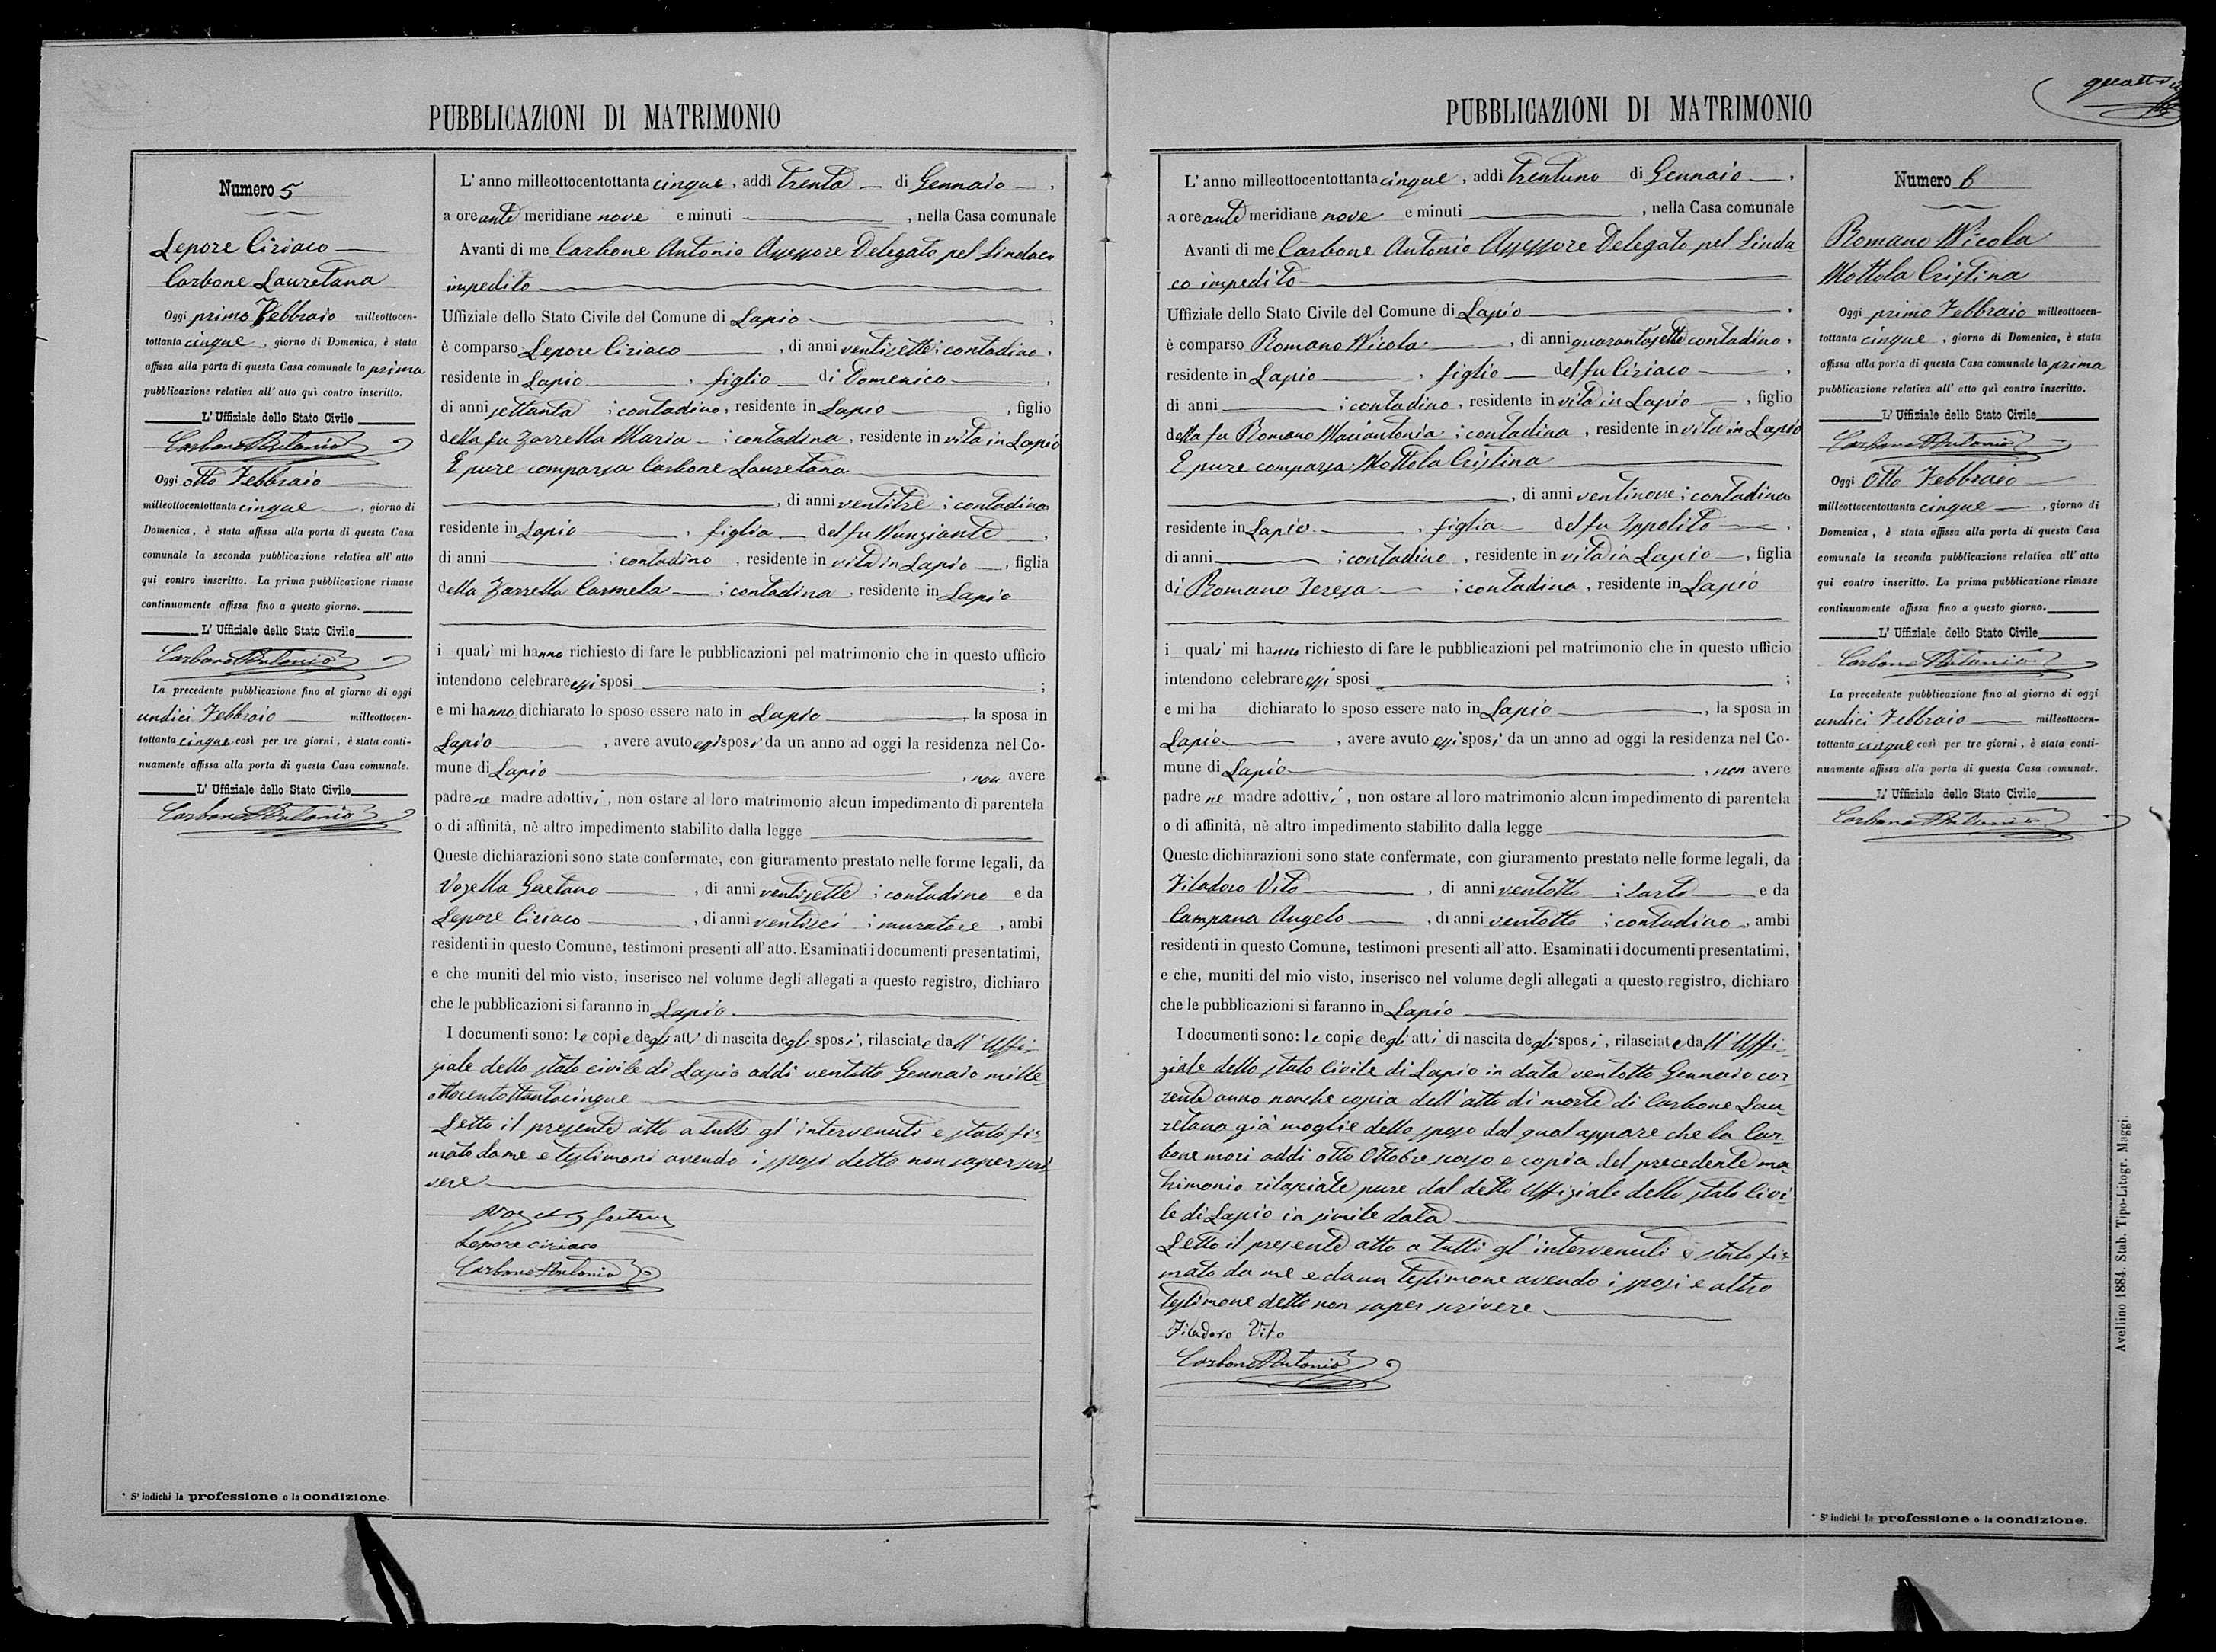 PUBBLICAZIONI DI MATRIMONIO
Numero 5
Lepore Ciriaco
Carbone Lauretana
Oggi primo Febbraio milleottocen-
tottanta cinque, giorno di Domenica, è stata
affissa alla porta di questa Casa comunale la prima
pubblicazione relativa all' atto quì contro inscritto.
L' Uffiziale dello Stato Civile
Carbone Antonio
Oggi otto Febbraio
milleottocentottanta cinque, giorno di
Domenica, è stata affissa alla porta di questa Casa
comunale la seconda pubblicazione relativa all' atto
qui contro inscritto. La prima pubblicazione rimase
continuamente affissa fino a questo giorno.
L' Uffiziale dello Stato Civile
Carbone Antonio
La precedente pubblicazione fino al giorno di oggi
undici Febbraio milleottocen-
tottanta cinque così per tre giorni, è stata conti-
nuamente affissa alla porta di questa Casa comunale.
L' Uffiziale dello Stato Civile
Carbone Antonio
* S' indichi la professione o la condizione.
L' anno milleottocentottanta cinque, addi trenta di Gennaio,
a ore ante meridiane nove e minuti , nella Casa comunale
Avanti di me Carbone Antonio Assessore Delegato pel Sindaco
impedito
Uffiziale dello Stato Civile del Comune di Lapio,
è comparso Lepore Ciriaco, di anni ventisette; contadino,
residente in Lapio, figlio di Domenico,
di anni settanta; contadino, residente in Lapio, figlio
della fu Zarrella Maria; contadina, residente in vita in Lapio
E pure comparsa Carbone Lauretana
, di anni ventitre; contadina
residente in Lapio, figlia del fu Nunziante,
di anni ; contadino, residente in vita in Lapio, figlia
della Zarrella Carmela; contadina, residente in Lapio
i quali mi hanno richiesto di fare le pubblicazioni pel matrimonio che in questo ufficio
intendono celebrare essi sposi ;
e mi hanno dichiarato lo sposo essere nato in Lapio, la sposa in
Lapio, avere avuto essi sposi da un anno ad oggi la residenza nel Co-
mune di Lapio, non avere
padre ne madre adottivi, non ostare al loro matrimonio alcun impedimento di parentela
o di affinità, nè altro impedimento stabilito dalla legge
Queste dichiarazioni sono state confermate, con giuramento prestato nelle forme legali, da
Vozella Gaetano, di anni ventisette; contadino e da
Lepore Ciriaco, di anni ventisei; muratore, ambi
residenti in questo Comune, testimoni presenti all' atto. Esaminati i documenti presentatimi,
e che muniti del mio visto, inserisco nel volume degli allegati a questo registro, dichiaro
che le pubblicazioni si faranno in Lapio.
I documenti sono: le copie degli atti di nascita degli sposi, rilasciate dall' Uffi-
ziale dello stato civile di Lapio addi ventotto Gennaio mille
ottocentottantacinque
Letto il presente atto a tutti gl' intervenuti e stato fir
mato da me e testimoni avendo i sposi detto non saper scri
vere
Lepore ciriaco
Carbone Antonio
PUBBLICAZIONI DI MATRIMONIO
L' anno milleottocentottanta cinque, addi trentuno di Gennaio,
a ore ante meridiane nove e minuti , nella Casa comunale
Avanti di me Carbone Antonio Assessore Delegato pel Sinda
co impedito
Uffiziale dello Stato Civile del Comune di Lapio.
è comparso Romano Nicola, di anni quarantasette contadino,
residente in Lapio, figlio del fu Ciriaco,
di anni ; contadino, residente in vita in Lapio, figlio
della fu Romano Mariantonia; contadina, residente in vita in Lapio
E pure comparsa Mottola Cristina
, di anni ventinove; contadina
residente in Lapio, figlia del fu Ippolito,
di anni ; contadino, residente in vita in Lapio, figlia
di Romano Teresa; contadina, residente in Lapio
i quali mi hanno richiesto di fare le pubblicazioni pel matrimonio che in questo ufficio
intendono celebrare essi sposi ;
e mi ha dichiarato lo sposo essere nato in Lapio, la sposa in
Lapio, avere avuto essi sposi da un anno ad oggi la residenza nel Co-
mune di Lapio, non avere
padre ne madre adottivi, non ostare al loro matrimonio alcun impedimento di parentela
o di affinità, nè altro impedimento stabilito dalla legge
Queste dichiarazioni sono state confermate, con giuramento prestato nelle forme legali, da
Filadoro Vito, di anni ventotto; sarto e da
Campana Angelo, di anni ventotto; contadino, ambi
residenti in questo Comune, testimoni presenti all' atto. Esaminati i documenti presentatimi,
e che, muniti del mio visto, inserisco nel volume degli allegati a questo registro, dichiaro
che le pubblicazioni si faranno in Lapio
I documenti sono: le copie degli atti di nascita degli sposi, rilasciate dall' Uffi-
ziale dello stato Civile di Lapio in data ventotto Gennaio cor
rente anno nonche copia dell' atto di morte di Carbone Lau
retana già moglie dello sposo dal qual appare che la Car
bone mori addi otto Ottobre scorso e copia del precedente ma
trimonio rilasciate pure dal detto Uffiziale dello stato Civi
le di Lapio in simile data
Letto il presente atto a tutti gl' intervenuti è stato fir
mato da me e da un testimone avendo i sposi e altro
testimone detto non saper scrivere
Filadoro Vito
Carbone Antonio
Numero 6
Romano Nicola
Mottola Cristina
Oggi primo Febbraio milleottocen-
tottanta cinque, giorno di Domenica, è stata
affissa alla porta di questa Casa comunale la prima
pubblicazione relativa all' atto quì contro inscritto.
L' Uffiziale dello Stato Civile
Carbone Antonio
Oggi Otto Febbraio
milleottocentottanta cinque, giorno di
Domenica, è stata affissa alla porta di questa Casa
comunale la seconda pubblicazione relativa all' atto
quì contro inscritto. La prima pubblicazione rimase
continuamente affissa fino a questo giorno.
L' Uffiziale dello Stato Civile
Carbone Antonio
La precedente pubblicazione fino al giorno di oggi
undici Febbraio milleottocen-
tottanta cinque così per tre giorni, è stata conti-
nuamente affissa alla porta di questa Casa comunale.
L' Uffiziale dello Stato Civile
Carbone Antonio
* S' indichi la professione o la condizione.
Avellino 1884. Stab. Tipo-Litogr. Maggi.